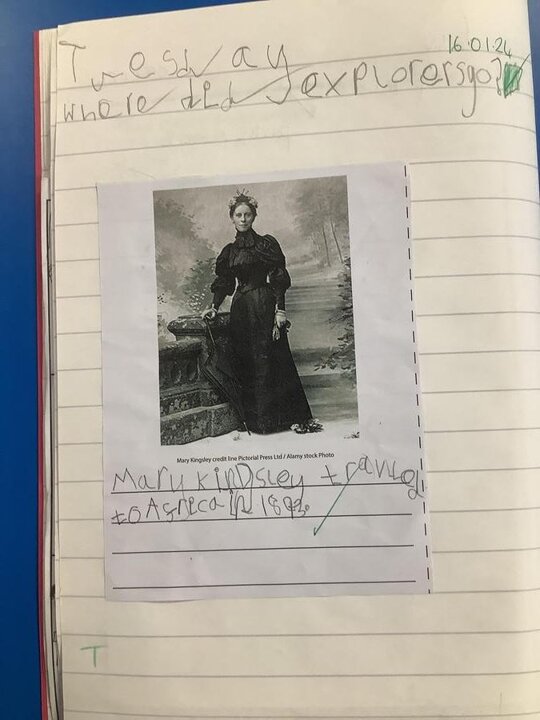 16.01.24
Tuesday
where did explorersgo?
Mary Kingsley credit line Pictorial Press Ltd / Alamy stock Photo
Mary kinDsley travel
to Africa in 1893.
T